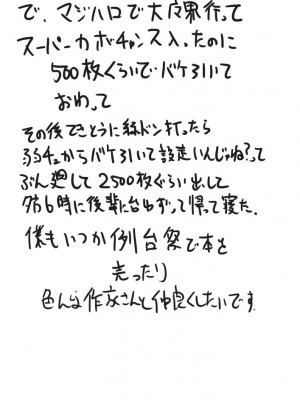 で、マジハロで大広界行って
スーパーカボチャンス入ったのに
500枚ぐらいでバケ引いて
おわって
その後てきとうに緑ドン打ったら
弱チェからバケ引いて設定いいんじゃね?って
ぶん廻して2500枚ぐらい出して
夕方6時に後輩に台ゆずって帰って寝た。
僕もいつか例台祭で本を
売ったり
色んな作家さんと仲良くしたいです